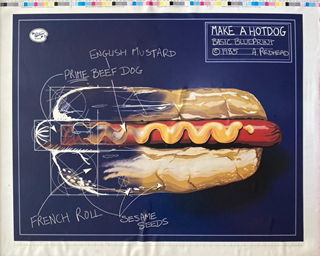 MAKE A HOTDOG
BASIC BLUEPRINT
© 1985 A. PIREHEAD
ENGLISH MUSTARD
PRIME BEEF DOG
FRENCH ROLL
SESAME
SEEDS